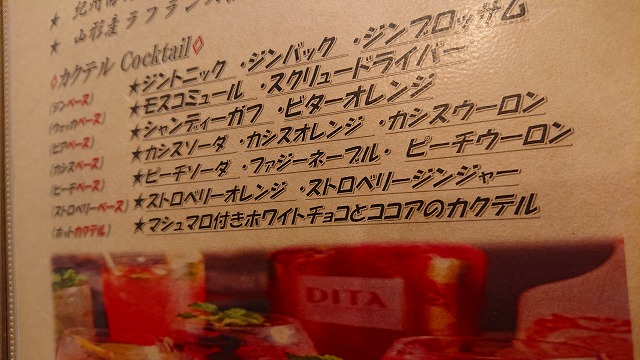 ★ 山形産ラフランス
◇カクテル Cocktail◇
(ジンベース) ★ジントニック ・ジンバック ・ジンブロッサム
(ウォッカベース) ★モスコミュール ・スクリュードライバー
(ビアベース) ★シャンディーガフ ・ビターオレンジ
(カシスベース) ★カシスソーダ ・カシスオレンジ ・カシスウーロン
(ピーチベース) ★ピーチソーダ ・ファジーネーブル ・ピーチウーロン
(ストロベリーベース) ★ストロベリーオレンジ ・ストロベリージンジャー
(ホットカクテル) ★マシュマロ付きホワイトチョコとココアのカクテル
DITA